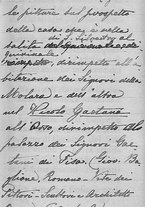 le pitture sul prospetto
della casa che è nella
di S. Silvestro al
salita
dirimpetto all'a-
bitazione dei Signori della
Molara e dell'altra
nel Vicolo Gaetana
all'Orso, dirimpetto al
palazzo dei Signori Gae-
tani dei Fede. (Giov. Ba-
glione, Romano - Vite dei
Pittori - Scultori e Architetti